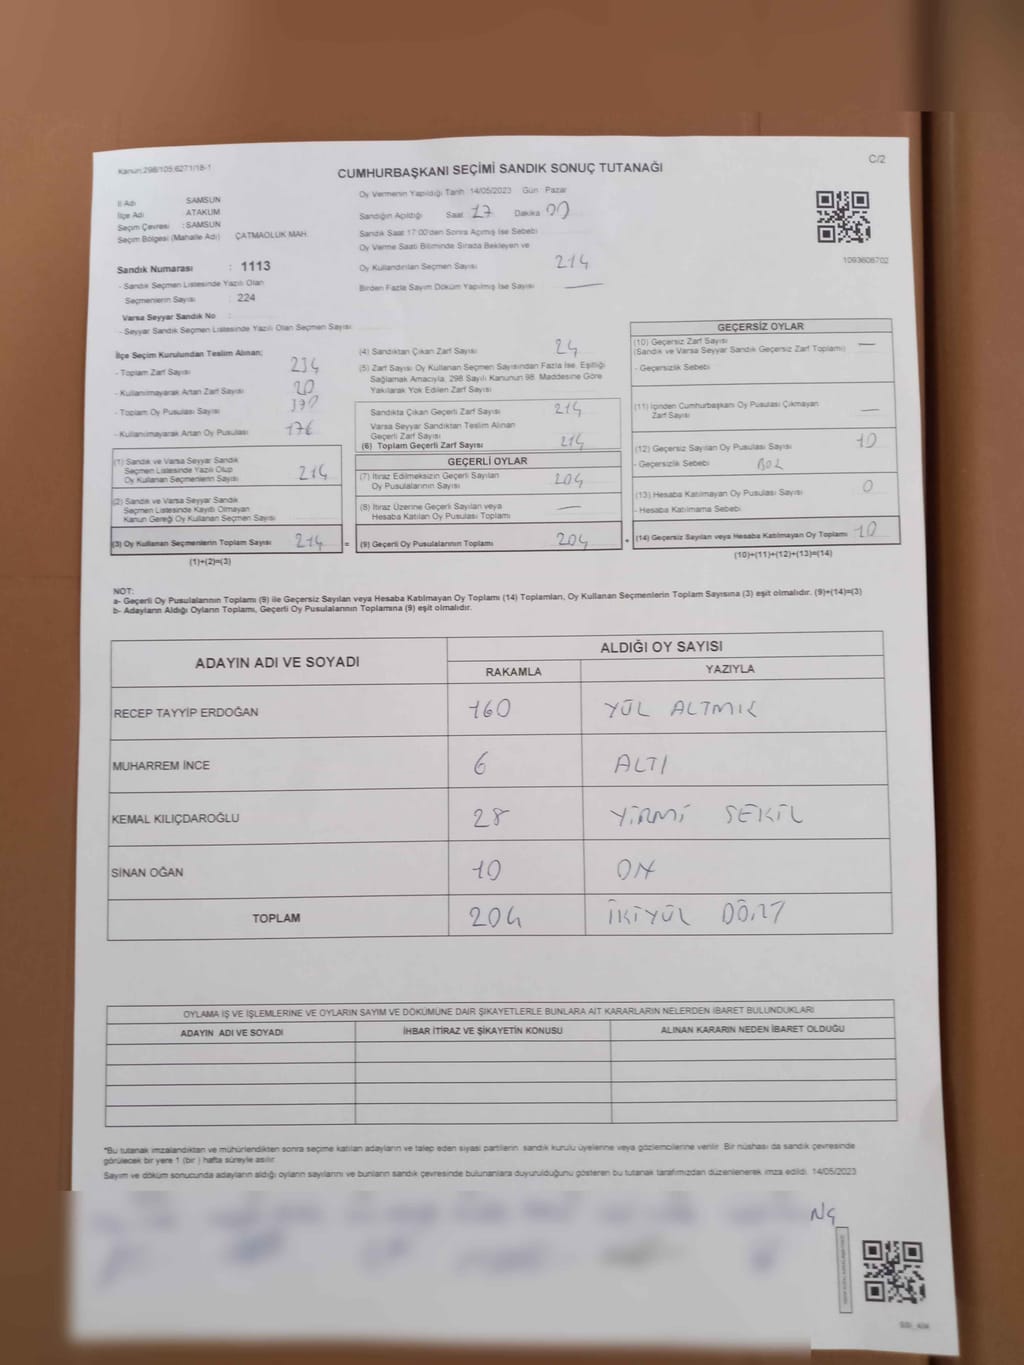 Kanun:298/105;6271/18-1
CUMHURBAŞKANI SEÇİMİ SANDIK SONUÇ TUTANAĞI
C/2
İl Adı SAMSUN
İlçe Adı : ATAKUM
Seçim Çevresi : SAMSUN
Seçim Bölgesi (Mahalle Adı) ÇATMAOLUK MAH.
Oy Vermenin Yapıldığı Tarih 14/05/2023 Gün Pazar
Sandığın Açıldığı Saat 17 Dakika 00
Sandık Saat 17:00'den Sonra Açılmış İse Sebebi
Oy Verme Saati Bitiminde Sırada Bekleyen ve
Oy Kullandırılan Seçmen Sayısı 214
Birden Fazla Sayım Döküm Yapılmış İse Sayısı —
1093608702
Sandık Numarası : 1113
- Sandık Seçmen Listesinde Yazılı Olan
Seçmenlerin Sayısı : 224
Varsa Seyyar Sandık No :
- Seyyar Sandık Seçmen Listesinde Yazılı Olan Seçmen Sayısı
İlçe Seçim Kurulundan Teslim Alınan;
- Toplam Zarf Sayısı 234
- Kullanılmayarak Artan Zarf Sayısı 20
- Toplam Oy Pusulası Sayısı
- Kullanılmayarak Artan Oy Pusulası 176
(1) Sandık ve Varsa Seyyar Sandık
Seçmen Listesinde Yazılı Olup
Oy Kullanan Seçmenlerin Sayısı 214
(2) Sandık ve Varsa Seyyar Sandık
Seçmen Listesinde Kayıtlı Olmayan
Kanun Gereği Oy Kullanan Seçmen Sayısı
(3) Oy Kullanan Seçmenlerin Toplam Sayısı 214 =
(1)+(2)=(3)
(4) Sandıktan Çıkan Zarf Sayısı 24
(5) Zarf Sayısı Oy Kullanan Seçmen Sayısından Fazla İse, Eşitliği
Sağlamak Amacıyla, 298 Sayılı Kanunun 98. Maddesine Göre
Yakılarak Yok Edilen Zarf Sayısı
Sandıkta Çıkan Geçerli Zarf Sayısı 214
Varsa Seyyar Sandıktan Teslim Alınan
Geçerli Zarf Sayısı
(6) Toplam Geçerli Zarf Sayısı 214
GEÇERLİ OYLAR
(7) İtiraz Edilmeksizin Geçerli Sayılan
Oy Pusulalarının Sayısı 204
(8) İtiraz Üzerine Geçerli Sayılan veya
Hesaba Katılan Oy Pusulası Toplamı —
(9) Geçerli Oy Pusulalarının Toplamı 204 +
GEÇERSİZ OYLAR
(10) Geçersiz Zarf Sayısı —
(Sandık ve Varsa Seyyar Sandık Geçersiz Zarf Toplamı)
- Geçersizlik Sebebi
(11) İçinden Cumhurbaşkanı Oy Pusulası Çıkmayan
Zarf Sayısı —
(12) Geçersiz Sayılan Oy Pusulası Sayısı 10
- Geçersizlik Sebebi
(13) Hesaba Katılmayan Oy Pusulası Sayısı 0
- Hesaba Katılmama Sebebi
(14) Geçersiz Sayılan veya Hesaba Katılmayan Oy Toplamı 10
(10)+(11)+(12)+(13)=(14)
NOT:
a- Geçerli Oy Pusulalarının Toplamı (9) ile Geçersiz Sayılan veya Hesaba Katılmayan Oy Toplamı (14) Toplamları, Oy Kullanan Seçmenlerin Toplam Sayısına (3) eşit olmalıdır. (9)+(14)=(3)
b- Adayların Aldığı Oyların Toplamı, Geçerli Oy Pusulalarının Toplamına (9) eşit olmalıdır.
ADAYIN ADI VE SOYADI
ALDIĞI OY SAYISI
RAKAMLA YAZIYLA
RECEP TAYYİP ERDOĞAN 160 YÜZ ALTMIŞ
MUHARREM İNCE 6 ALTI
KEMAL KILIÇDAROĞLU 28 YİRMİ SEKİZ
SİNAN OĞAN 10 ON
TOPLAM 204 İKİYÜZ DÖRT
OYLAMA İŞ VE İŞLEMLERİNE VE OYLARIN SAYIM VE DÖKÜMÜNE DAİR ŞİKAYETLERLE BUNLARA AİT KARARLARIN NELERDEN İBARET BULUNDUKLARI
ADAYIN ADI VE SOYADI İHBAR İTİRAZ VE ŞİKAYETİN KONUSU ALINAN KARARIN NEDEN İBARET OLDUĞU
*Bu tutanak imzalandıktan ve mühürlendikten sonra seçime katılan adayların ve talep eden siyasi partilerin sandık kurulu üyelerine veya gözlemcilerine verilir. Bir nüshası da sandık çevresinde
görülecek bir yere 1 (bir) hafta süreyle asılır.
Sayım ve döküm sonucunda adayların aldığı oyların sayılarını ve bunların sandık çevresinde bulunanlara duyurulduğunu gösteren bu tutanak tarafımızdan düzenlenerek imza edildi. 14/05/2023